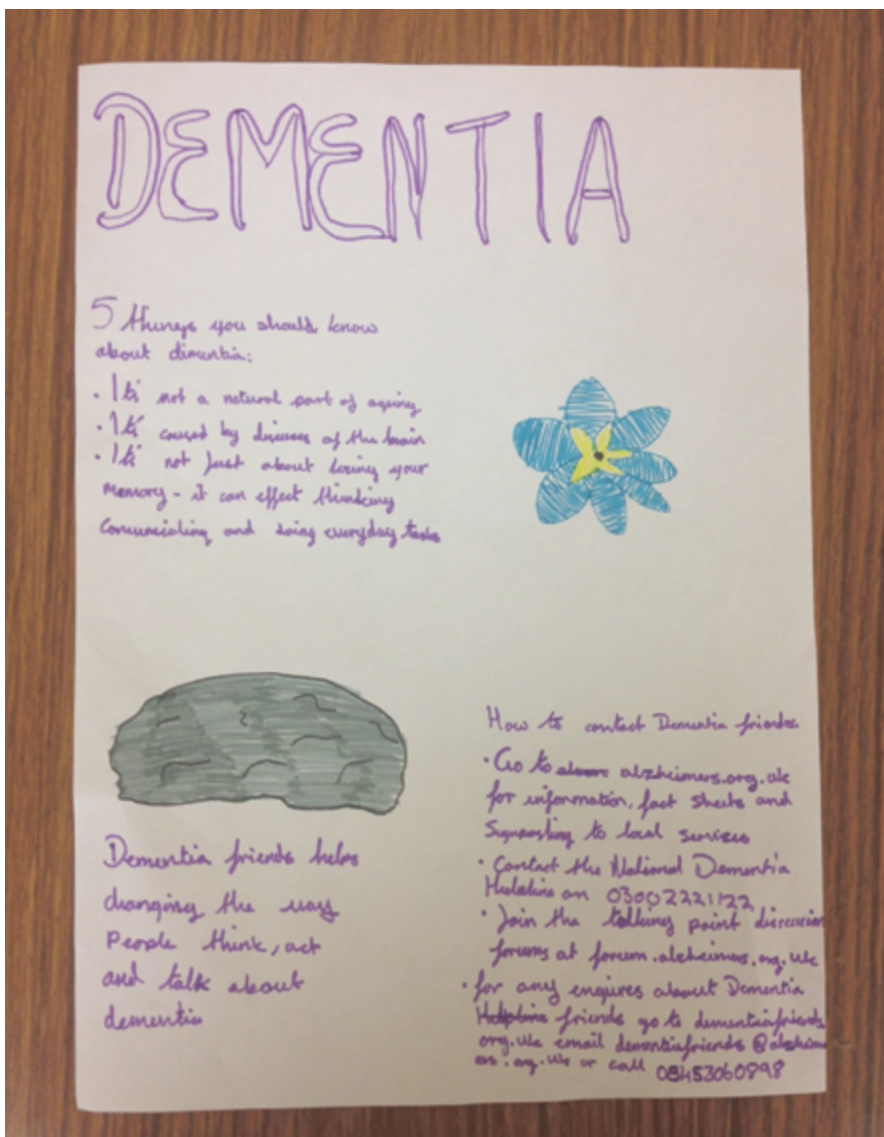 DEMENTIA
5 things you should know
about dimentia:
· It's not a natural part of ageing
· It's caused by diseases of the brain
· It's not just about losing your
memory - it can effect thinking
Comunicating and doing everyday tasks
Dementia friends helps
changing the way
People think, act
and talk about
dementia
How to contact Dementia friends
· Go to alzheimers.org.uk
for information, fact sheets and
Signposting to local services
· Contact the National Dementia
Helpline on 03002221122
· Join the talking point discussion
forums at forum.alzheimers.org.uk
· for any enquires about Dementia
Helpline friends go to dementiafriends
org.uk email dementiafriends@alzheim
ers.org.uk or call 08453060898